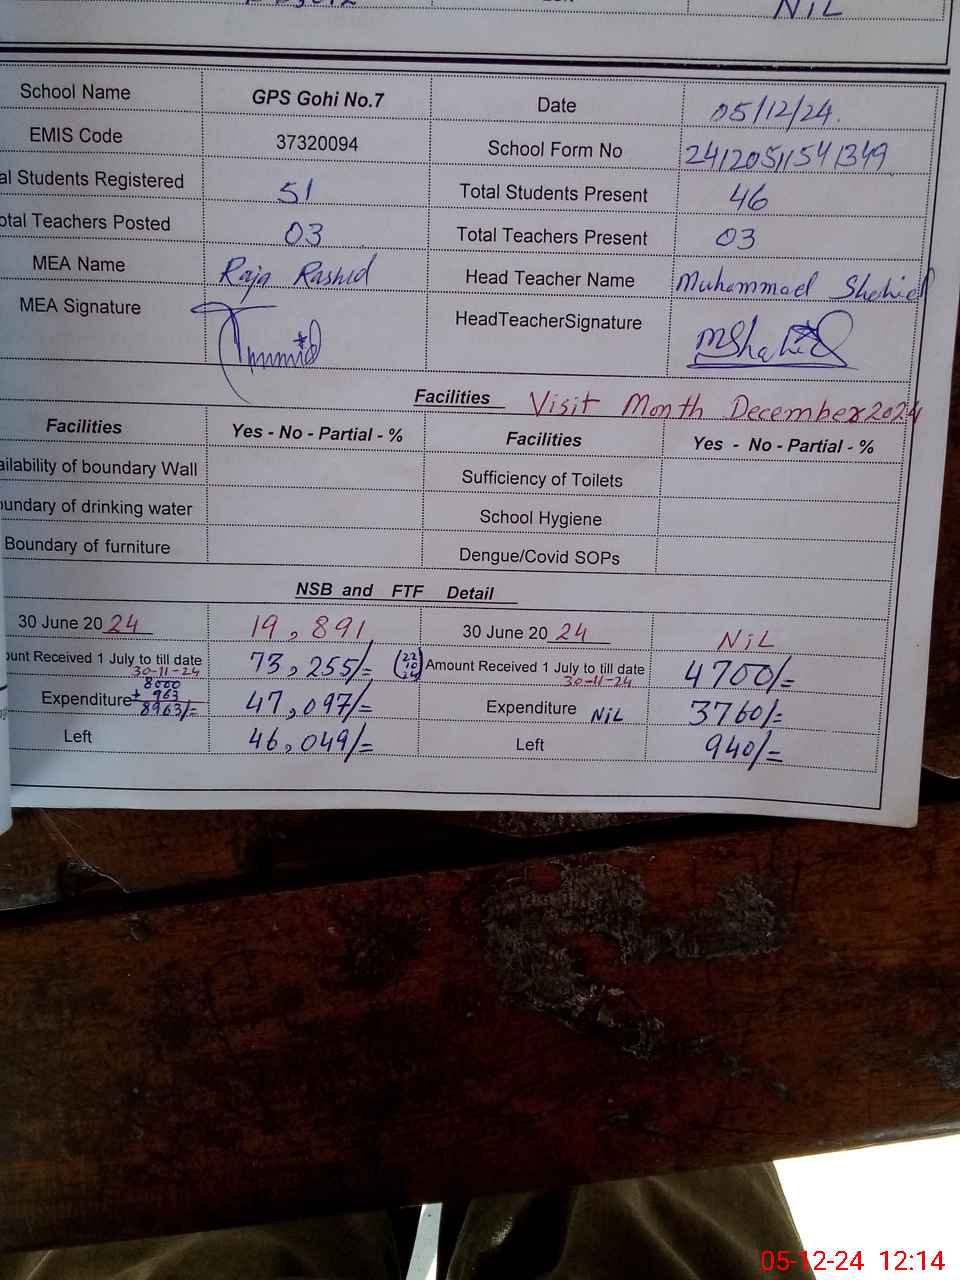 NiL
School Name GPS Gohi No.7 Date 05/12/24.
EMIS Code 37320094 School Form No 24120511541349
al Students Registered 51 Total Students Present 46
otal Teachers Posted 03 Total Teachers Present 03
MEA Name Raja Rashid Head Teacher Name Muhammad Shahid
MEA Signature HeadTeacherSignature MShahid
Facilities Visit Month December 2024
Facilities Yes - No - Partial - % Facilities Yes - No - Partial - %
ailability of boundary Wall Sufficiency of Toilets
oundary of drinking water School Hygiene
Boundary of furniture Dengue/Covid SOPs
NSB and FTF Detail
30 June 20 24 19,891 30 June 20 24 NiL
ount Received 1 July to till date 73,255/= (22 10 24) Amount Received 1 July to till date 4700/=
30-11-24 30-11-24
8000
Expenditure + 963 47,097/= Expenditure NiL 3760/=
8963/=
Left 46,049/= Left 940/=
05-12-24 12:14